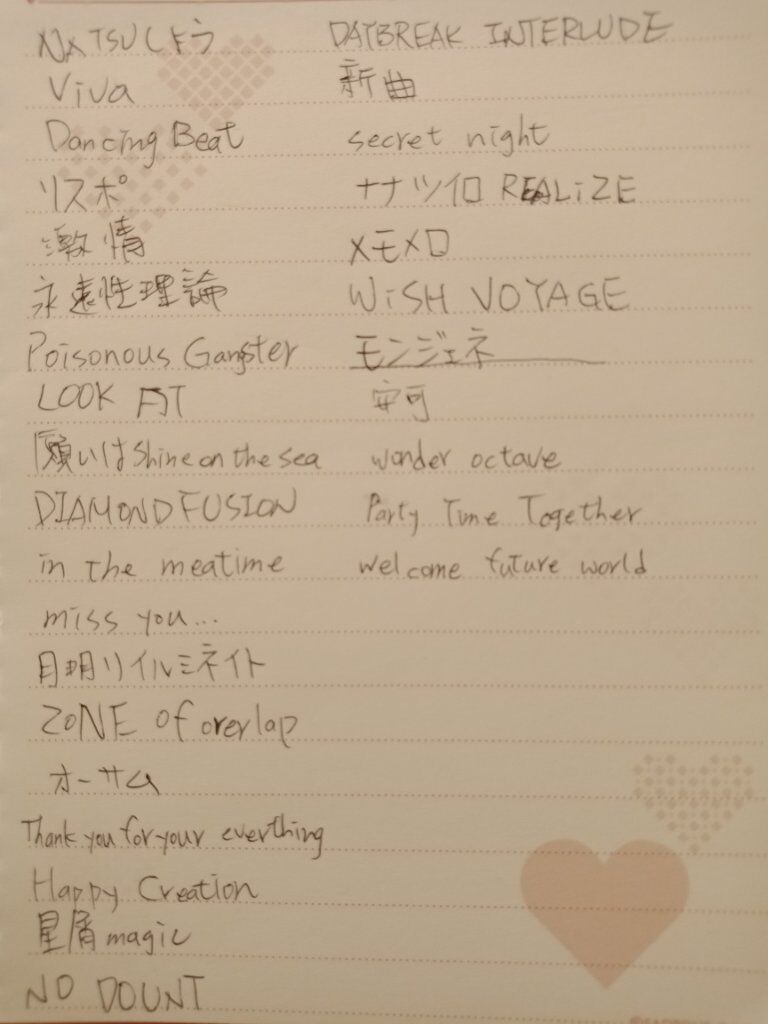 NATSUしよう
Viva
Dancing Beat
リスポ
激情
永遠性理論
Poisonous Gangster
LOOK AT
願いはShine on the sea
DIAMOND FUSION
in the meatime
miss you...
月明リイルミネイト
ZONE Of overlap
オーサム
Thank you for your everthing
Happy Creation
星屑magic
NO DOUNT
DAYBREAK INTERLUDE
新曲
secret night
ナナツイロ REALiZE
メモメロ
WiSH VOYAGE
モンジェネ
安可
wonder octave
Party Time Together
welcome future world